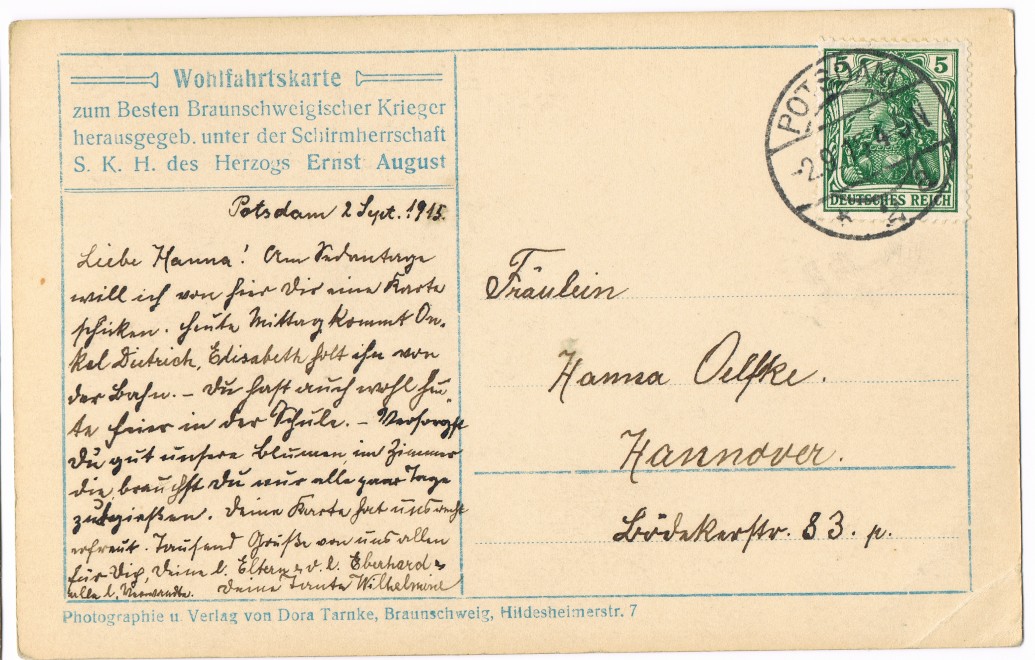 Wohlfahrtskarte
zum Besten Braunschweigischer Krieger
herausgegeb. unter der Schirmherrschaft
S. K. H. des Herzogs Ernst August
Potsdam 2 Sept. 1915.
Liebe Hanna! Am Sedantage
will ich von hier Dir eine Karte
schicken. Heute Mittag kommt On-
kel Dietrich, Elisabeth holt ihn von
der Bahn. – Du hast auch wohl heu-
te Feier in der Schule. – Versorgst
Du gut unsere Blumen im Zimmer
die brauchst Du nur alle paar Tage
zu gießen. Deine Karte hat uns recht
erfreut. Tausend Grüße von uns allen
für Dich, Deine l. Eltern u. d. l. Eberhard u.
alle l. Verwandte. Deine Tante Wilhelmine
POTSDAM
5 5
DEUTSCHES REICH
Fräulein
Hanna Oelfke.
Hannover.
Bödekerstr. 83. p.
Photographie u. Verlag von Dora Tarnke, Braunschweig, Hildesheimerstr. 7